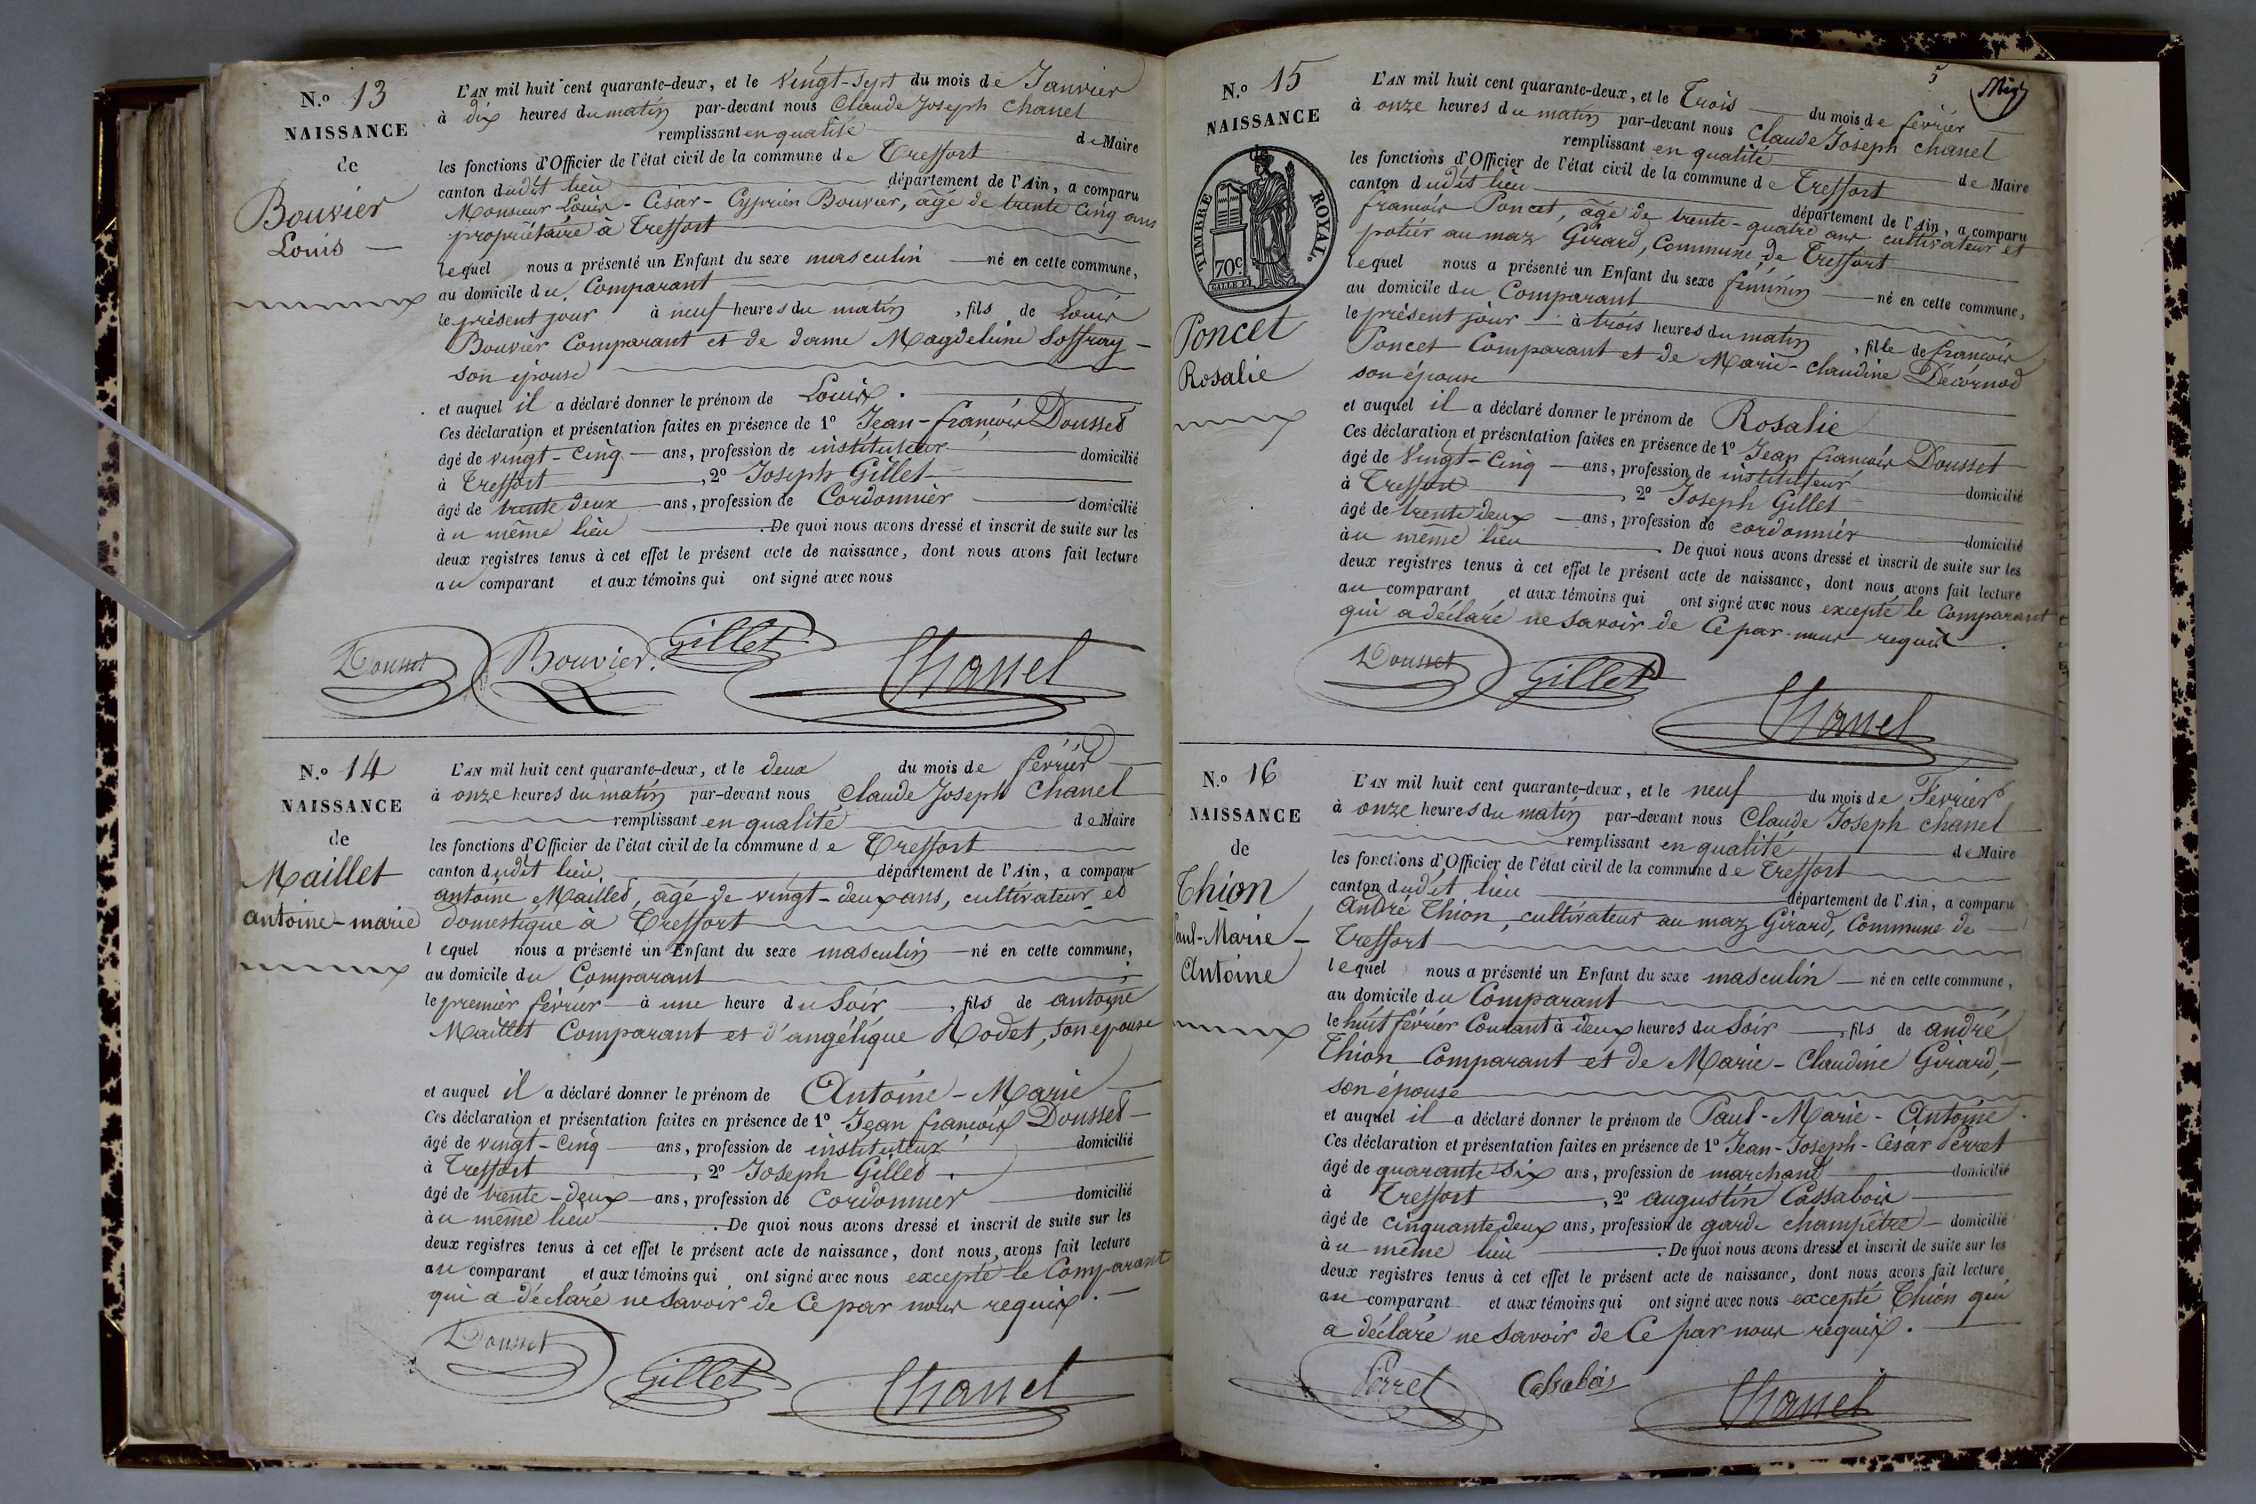 N.o 13
NAISSANCE
de
Bouvier
Louis
L'AN mil huit cent quarante-deux, et le vingt-sept du mois de Janvier
à dix heures du matin par-devant nous Claude Joseph Chanel
remplissant en qualité de Maire
les fonctions d'Officier de l'état civil de la commune de Treffort
canton dudit lieu département de l'Ain, a comparu
Monsieur Louis-César-Cyprien Bouvier, âgé de trente cinq ans
propriétaire à Treffort
lequel nous a présenté un Enfant du sexe masculin né en cette commune,
au domicile du Comparant
le présent jour à neuf heures du matin, fils de Louis
Bouvier Comparant et de dame Magdeleine Soffray
son épouse
et auquel il a déclaré donner le prénom de Louis.
Ces déclaration et présentation faites en présence de 1º Jean-françois Dousset
âgé de vingt-cinq ans, profession de instituteur domicilié
à Treffort, 2º Joseph Gillet
âgé de trente deux ans, profession de Cordonnier domicilié
au même lieu. De quoi nous avons dressé et inscrit de suite sur les
deux registres tenus à cet effet le présent acte de naissance, dont nous avons fait lecture
au comparant et aux témoins qui ont signé avec nous
Dousset Bouvier. Gillet Chanel
N.o 14
NAISSANCE
de
Maillet
antoine-marie
L'AN mil huit cent quarante-deux, et le deux du mois de février
à onze heures du matin par-devant nous Claude Joseph Chanel
remplissant en qualité de Maire
les fonctions d'Officier de l'état civil de la commune de Treffort
canton dudit lieu département de l'Ain, a comparu
antoine Maillet, âgé de vingt-deux ans, cultivateur et
domestique à Treffort
lequel nous a présenté un Enfant du sexe masculin né en cette commune,
au domicile du Comparant
le premier février à une heure du Soir, fils de antoine
Maillet Comparant et d'angélique Rodet, son épouse
et auquel il a déclaré donner le prénom de Antoine-Marie
Ces déclaration et présentation faites en présence de 1º Jean françois Dousset
âgé de vingt-cinq ans, profession de instituteur domicilié
à Treffort, 2º Joseph Gillet
âgé de trente-deux ans, profession de Cordonnier domicilié
au même lieu. De quoi nous avons dressé et inscrit de suite sur les
deux registres tenus à cet effet le présent acte de naissance, dont nous avons fait lecture
au comparant et aux témoins qui ont signé avec nous excepté le Comparant
qui a déclaré ne savoir de Ce par nous requis.
Dousset Gillet Chanel
5
N.o 15
NAISSANCE
TIMBRE ROYAL.
70c
Poncet
Rosalie
L'AN mil huit cent quarante-deux, et le Trois du mois de février
à onze heures du matin par-devant nous Claude Joseph Chanel
remplissant en qualité de Maire
les fonctions d'Officier de l'état civil de la commune de Treffort
canton dudit lieu département de l'Ain, a comparu
francois Poncet, âgé de trente-quatre ans cultivateur et
potier au maz Girard, Commune de Treffort
lequel nous a présenté un Enfant du sexe féminin né en cette commune,
au domicile du Comparant
le présent jour à trois heures du matin, fille de francois
Poncet Comparant et de Marie-claudine Décórnod
son épouse
et auquel il a déclaré donner le prénom de Rosalie
Ces déclaration et présentation faites en présence de 1º Jean francois Dousset
âgé de Vingt-Cinq ans, profession de instituteur domicilié
à Treffort, 2º Joseph Gillet
âgé de trente deux ans, profession de cordonnier domicilié
au même lieu. De quoi nous avons dressé et inscrit de suite sur les
deux registres tenus à cet effet le présent acte de naissance, dont nous avons fait lecture
au comparant et aux témoins qui ont signé avec nous excepté le Comparant
qui a déclaré ne savoir de Ce par nous requis.
Dousset Gillet Chanel
N.o 16
NAISSANCE
de
Thion
Paul-Marie-
Antoine
L'AN mil huit cent quarante-deux, et le neuf du mois de Février
à onze heures du matin par-devant nous Claude Joseph Chanel
remplissant en qualité de Maire
les fonctions d'Officier de l'état civil de la commune de Treffort
canton dudit lieu département de l'Ain, a comparu
André Thion, cultivateur au maz Girard, Commune de
Treffort
lequel nous a présenté un Enfant du sexe masculin né en cette commune,
au domicile du Comparant
le huit février Courant à deux heures du Soir, fils de andré
Thion Comparant et de Marie-Claudine Girard,
son épouse
et auquel il a déclaré donner le prénom de Paul-Marie-Antoine.
Ces déclaration et présentation faites en présence de 1º Jean-Joseph-César Perret
âgé de quarante six ans, profession de marchand domicilié
à Treffort, 2º augustin Cassabois
âgé de cinquante deux ans, profession de garde champêtre domicilié
au même lieu. De quoi nous avons dressé et inscrit de suite sur les
deux registres tenus à cet effet le présent acte de naissance, dont nous avons fait lecture
au comparant et aux témoins qui ont signé avec nous excepté Thion qui
a déclaré ne savoir de Ce par nous requis.
Perret Cassabois Chanel